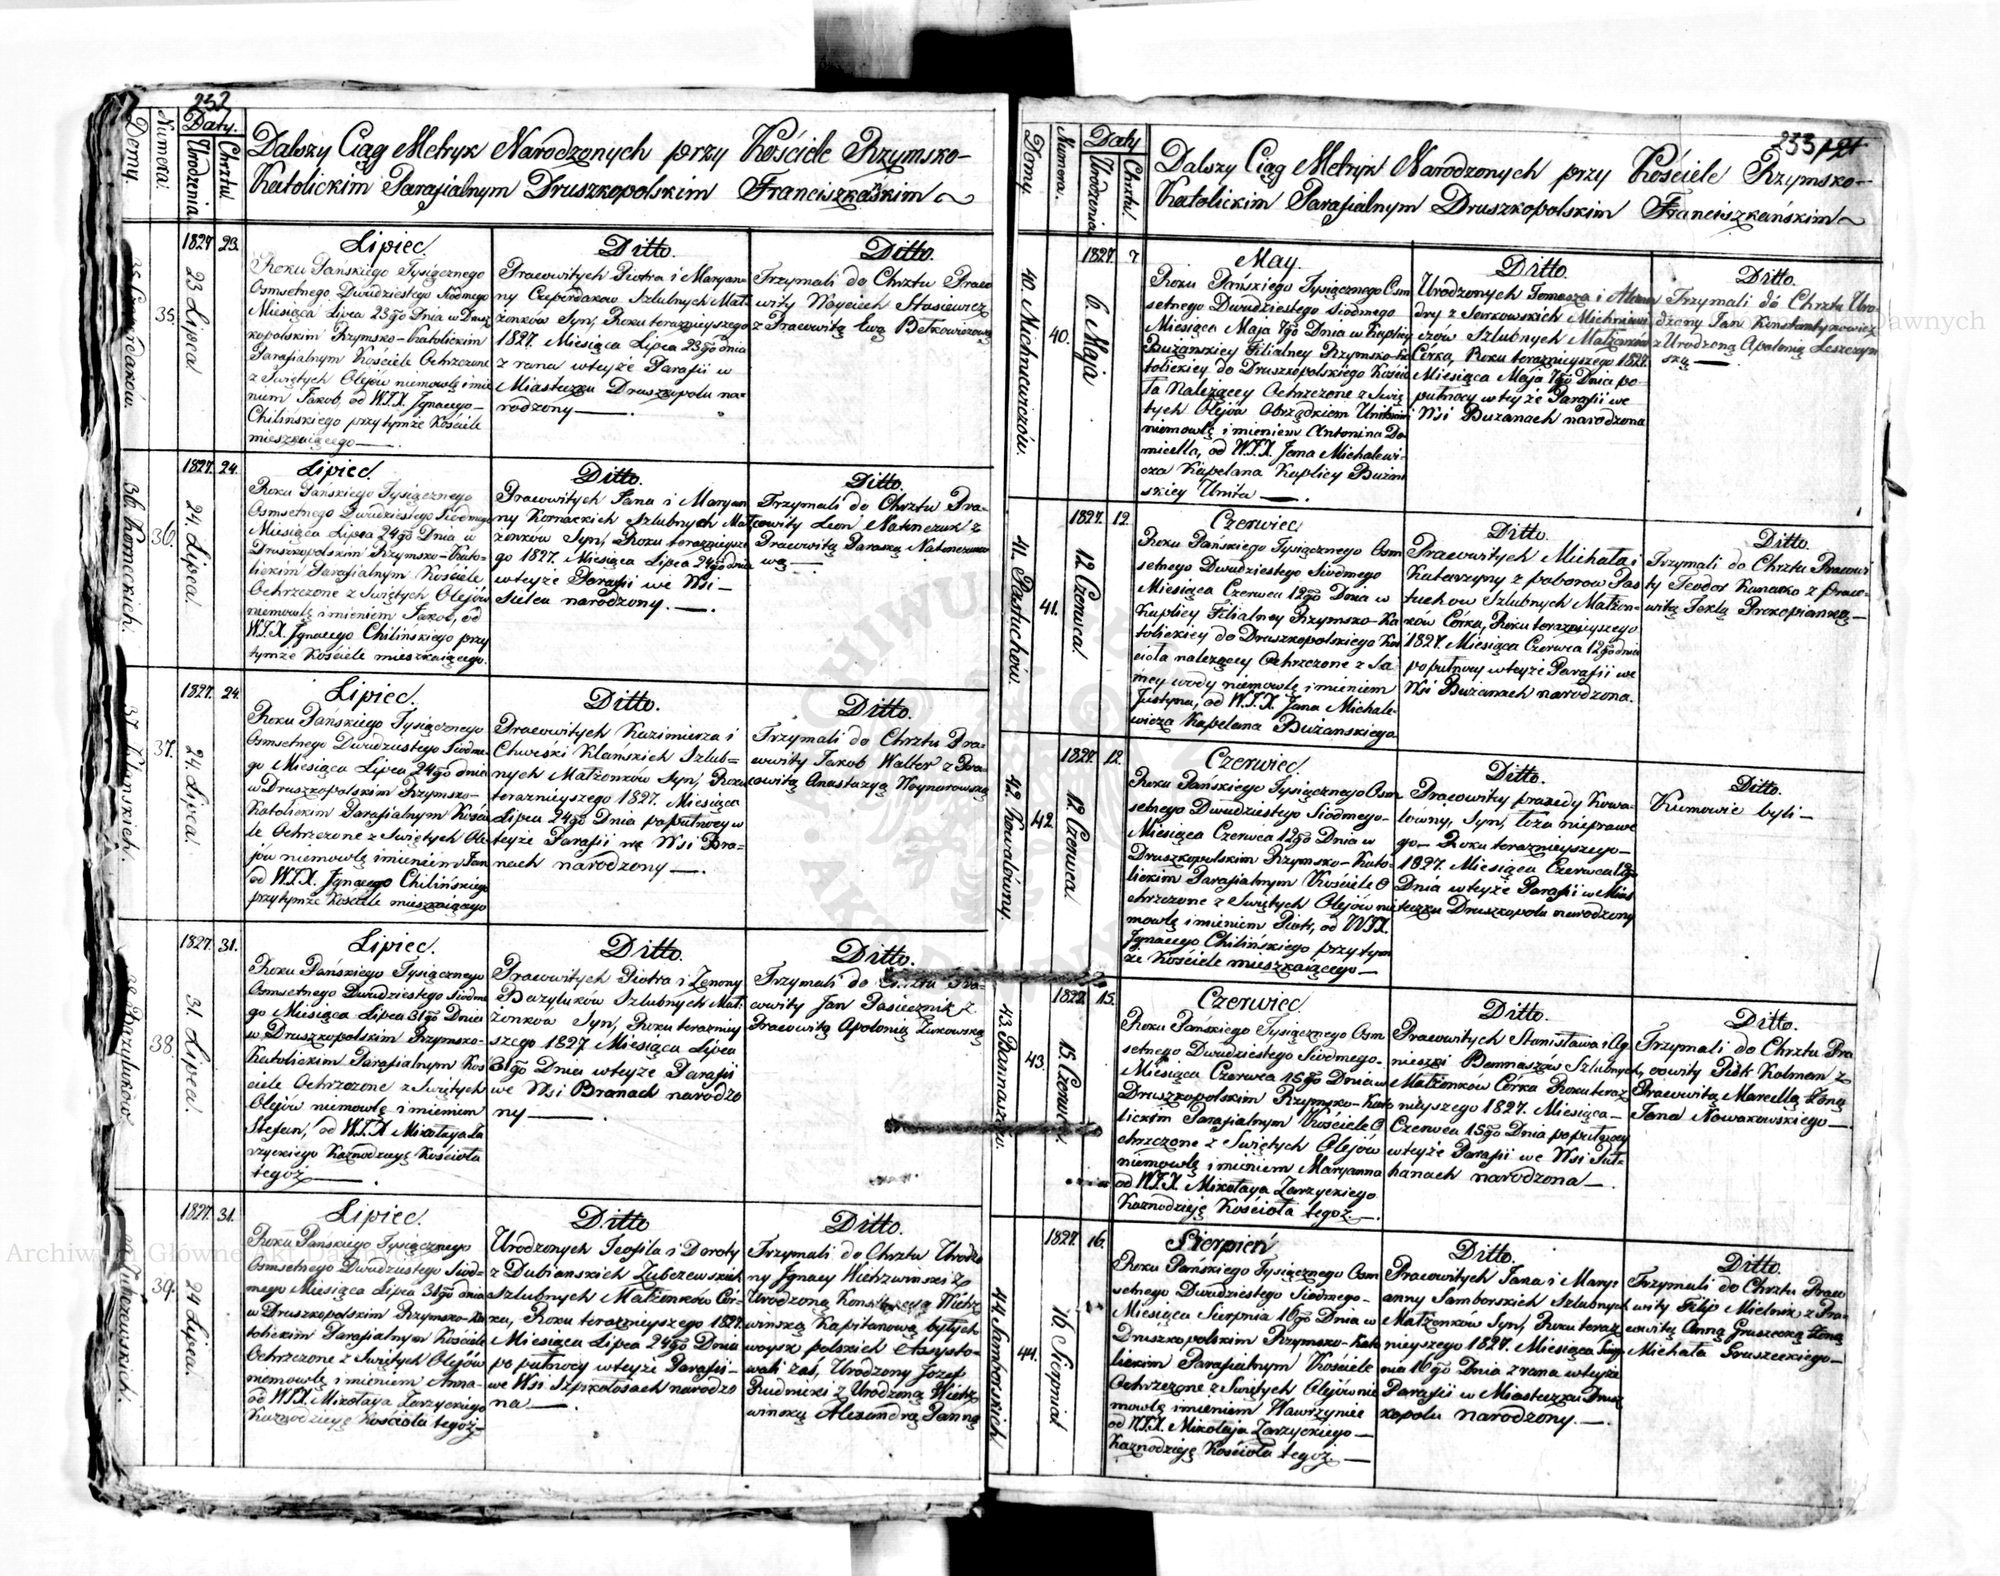 232
Domy. Numera. Daty. Urodzenia. Chrztu.
Dalszy Ciąg Metryk Narodzonych przy Kościele Rzymsko-
Katolickim Parafialnym Druszkopolskim Franciszkańskim
35.
1827 23.
23 Lipca
Lipiec.
Roku Pańskiego Tysiącznego
Osmsetnego Dwudziestego Siodmego
Miesiąca Lipca 23go Dnia w Drusz
kopolskim Rzymsko-Katolickim
Parafialnym Kościele Ochrzczone
z Swiętych Olejów niemowlę imie
niem Jakob, od W.J.X. Jgnacego-
Chilińskiego przy tymże Kościele
mieszkaiącego
Ditto.
Pracowitych Piotra i Maryan-
ny Szlubnych Mał-
żonków Syn, Roku teraznieyszego
1827. Miesiąca Lipca 23go dnia
z rana wteyże Parafii w
Miasteczku Druszkopolu na-
rodzony.
Ditto.
Trzymali do Chrztu Praco
wity Woyciech Stasiewicz
z Pracowitą Ewą
36. Korneckich.
36.
1827. 24.
24 Lipca.
Lipiec.
Roku Pańskiego Tysiącznego
Osmsetnego Dwudziestego Siodmego
Miesiąca Lipca 24go Dnia w
Druszkopolskim Rzymsko-Kato-
lickim Parafialnym Kościele
Ochrzczone z Swiętych Olejów
niemowlę imieniem Jakob, od
W.J.X. Jgnacego Chilińskiego przy
tymże Kościele mieszkaiącego.
Ditto.
Pracowitych Jana i Maryan
ny Korneckich Szlubnych Mał
żonków Syn, Roku teraznieysze
go 1827. Miesiąca Lipca 24go dnia
wteyże Parafii we Wsi
Sielcu narodzony.
Ditto.
Trzymali do Chrztu Pra-
cowity Leon z
Pracowitą Paraską
37. Klańskich.
37.
1827. 24
24 Lipca.
Lipiec.
Roku Pańskiego Tysiącznego
Osmsetnego Dwudziestego Siodme
go Miesiąca Lipca 24go dnia
w Druszkopolskim Rzymsko-
Katolickim Parafialnym Kości
le Ochrzczone z Swiętych Ole
jów niemowlę imieniem Jan
od W.J.X. Jgnacego Chilińskiego
przy tymże Kościele mieszkaiącego
Ditto.
Pracowitych Kazimierza i
Klańskich Szlub-
nych Małżonków Syn, Roku
teraznieyszego 1827. Miesiąca
Lipca 24go Dnia popułnocy w
teyże Parafii we Wsi Bra-
nach narodzony.
Ditto.
Trzymali do Chrztu Pra-
cowity Jakob Walter z Pra-
cowitą Anastazyą Woynarowską
38. Bazyluków.
38.
1827. 31.
31. Lipca.
Lipiec.
Roku Pańskiego Tysiącznego
Osmsetnego Dwudziestego Siodme
go Miesiąca Lipca 31go Dnia
w Druszkopolskim Rzymsko-
Katolickim Parafialnym Koś
ciele Ochrzczone z Swiętych
Olejów niemowlę imieniem
Stefan, od W.J.X Mikołaja Za
rzyckiego Kaznodzieję Kościoła
tegoż.
Ditto.
Pracowitych Piotra i Zenony
Bazyluków Szlubnych Mał-
żonków Syn, Roku terazniey
szego 1827. Miesiąca Lipca
31go Dnia wteyże Parafii
we Wsi Branach narodzo
ny
Ditto.
Trzymali do Chrztu Pra-
cowity Jan Pasiecznik z
Pracowitą Apolonią Żukowską
39.
1827. 31.
24 Lipca.
Lipiec.
Roku Pańskiego Tysiącznego
Osmsetnego Dwudziestego Siod-
mego Miesiąca Lipca 31go dnia
w Druszkopolskim Rzymsko-Ka
tolickim Parafialnym Kościele
Ochrzczone z Swiętych Olejów
niemowlę imieniem Anna-
od W.J.X. Mikołaja Zarzyckiego
Kaznodzieję Kościoła tegoż
Ditto
Urodzonych Teofila i Doroty
z Dubianskich
Szlubnych Małżonków Cór-
ka, Roku teraznieyszego 1827.
Miesiąca Lipca 24go Dnia
po pułnocy wteyże Parafii-
we Wsi Szpikołosach narodzo
na.
Ditto.
Trzymali do Chrztu Urodzo
ny Jgnacy z
Urodzoną
Kapitanową byłych
woysk polskich Assysto-
wali zaś, Urodzony Jozef
Rudnicki z Urodzoną
Alexandrą Panną
233
Domy. Numera. Daty Urodzenia Chrztu.
Dalszy Ciąg Metryk Narodzonych przy Kościele Rzymsko-
Katolickim Parafialnym Druszkopolskim Franciszkańskim
40. Michniewiczów.
40.
1827. 7
6. Maja
May.
Roku Pańskiego Tysiącznego Osm
setnego Dwudziestego Siodmego
Miesiąca Maja 7go Dnia w Kaplicy
Bużańskiey Filialney Rzymsko-Ka
tolickiey do Druszkopolskiego Kościo
ła Należącey Ochrzczone z Swię
tych Olejów Obrządkiem Unitskim
niemowlę imieniem Antonina Do
micella, od W.J.X. Jana Michalewi-
cza Kapelana Kaplicy Bużan
skiey Unita
Ditto.
Urodzonych Tomasza i
dry z Michniewi
czów Szlubnych Małżonków
Córka, Roku teraznieyszego 1827.
Miesiąca Maja 7go Dnia po-
pułnocy wteyże Parafii we
Wsi Bużanach narodzona
Ditto.
Trzymali do Chrztu Uro
dzony Jan Konstantynowicz
z Urodzoną Apolonią Leszczyn
ską
41. Pastuchów.
41.
1827. 12.
12 Czerwca.
Czerwiec
Roku Pańskiego Tysiącznego Osm
setnego Dwudziestego Siodmego
Miesiąca Czerwca 12go Dnia w
Kaplicy Filialney Rzymsko-Ka
tolickiey do Druszkopolskiego Koś
cioła należącey Ochrzczone z Sa
mey wody niemowlę imieniem
Justyna, od W.J.X. Jana Michale-
wicza Kapelana Bużanskiego
Ditto.
Pracowitych Michała i
Katarzyny z poborow Pas
tuchow Szlubnych Małżon-
ków Córka, Roku teraznieyszego
1827. Miesiąca Czerwca 12go dnia
po pułnocy wteyże Parafii we
Wsi Bużanach narodzona.
Ditto.
Trzymali do Chrztu Pracowi
ty Teodor z Praco-
witą Teklą
42. Kowalówny.
42
1827. 12.
12 Czerwca.
Czerwiec.
Roku Pańskiego Tysiącznego Osm
setnego Dwudziestego Siodmego-
Miesiąca Czerwca 12go Dnia w
Druszkopolskim Rzymsko-Kato-
lickim Parafialnym Kościele O
chrzczone z Swiętych Olejów nie
mowlę imieniem Piotr, od W.J.X.
Jgnacego Chilińskiego przy tym
że Kościele mieszkaiącego
Ditto.
Pracowitey Kowa-
lowny, Syn, łoża nieprawe
go- Roku teraznieyszego-
1827. Miesiąca Czerwca 12go
Dnia wteyże Parafii w Mias
teczku Druszkopolu narodzony
Ditto.
Kumowie byli
43.
43.
1827. 15.
15. Czerwca.
Czerwiec
Roku Pańskiego Tysiącznego Osm
setnego Dwudziestego Siodmego.
Miesiąca Czerwca 15go Dnia w
Druszkopolskim Rzymsko-Kato
lickim Parafialnym Kościele O
chrzczone z Swiętych Olejów
niemowlę imieniem Maryanna
od W.J.X. Mikołaja Zarzyckiego
Kaznodzieję Kościoła tegoż.
Ditto.
Pracowitych Stanisława i Ag
nieszki Szlubnych
Małżonków Córka Roku teraz
nieyszego 1827. Miesiąca-
Czerwca 15go Dnia po pułnocy
wteyże Parafii we Wsi
narodzona
Ditto.
Trzymali do Chrztu Pra
cowity Piotr Kolman z
Pracowitą Marcellą Żoną
Jana Nowakowskiego
44. Samborskich
44.
1827. 16.
16 Sierpnia
Sierpień
Roku Pańskiego Tysiącznego Osm
setnego Dwudziestego Siodmego-
Miesiąca Sierpnia 16go Dnia w
Druszkopolskim Rzymsko-Kato
lickim Parafialnym Kościele
Ochrzczone z Swiętych Olejów nie
mowlę imieniem Wawrzyniec
od W.J.X. Mikołaja Zarzyckiego
Kaznodzieję Kościoła tegoż.
Ditto.
Pracowitych Jana i Mary-
anny Samborskich Szlubnych
Małżonków Syn, Roku teraz
nieyszego 1827. Miesiąca Sierp
nia 16go Dnia z rana wteyże
Parafii w Miasteczku Drusz
kopolu narodzony.
Ditto.
Trzymali do Chrztu Praco
wity Filip Mielnik z Pra-
cowitą Anną Gruszecką Żoną
Michała Gruszeckiego
Archiwum Główne Akt Dawnych